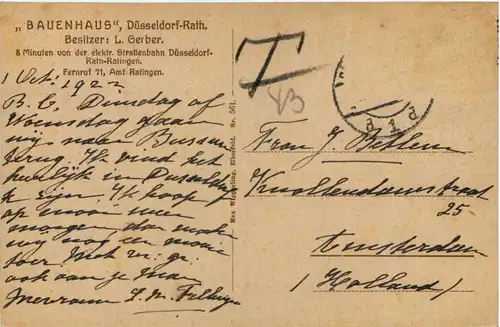 „BAUENHAUS“, Düsseldorf-Rath.
Besitzer: L. Gerber.
8 Minuten von der elektr. Straßenbahn Düsseldorf-
Rath-Ratingen.
Fernruf 71, Amt Ratingen.
1 Oct. 1922
B. C, Dinsdag of
Woensdag gaan
wij naar Bussum
terug. Ik vind het
heerlijk in Dusseldorf
te zijn. Ik hoop
op mooi weer
morgen dan maken
wij nog een mooie
toer
ook aan je man
Mevrouw L. M.
Max Wipperling, Elberfeld. Nr. 561.
T
83
Frau J.
Knollendamstraat
25
Amsterdam
(Holland)